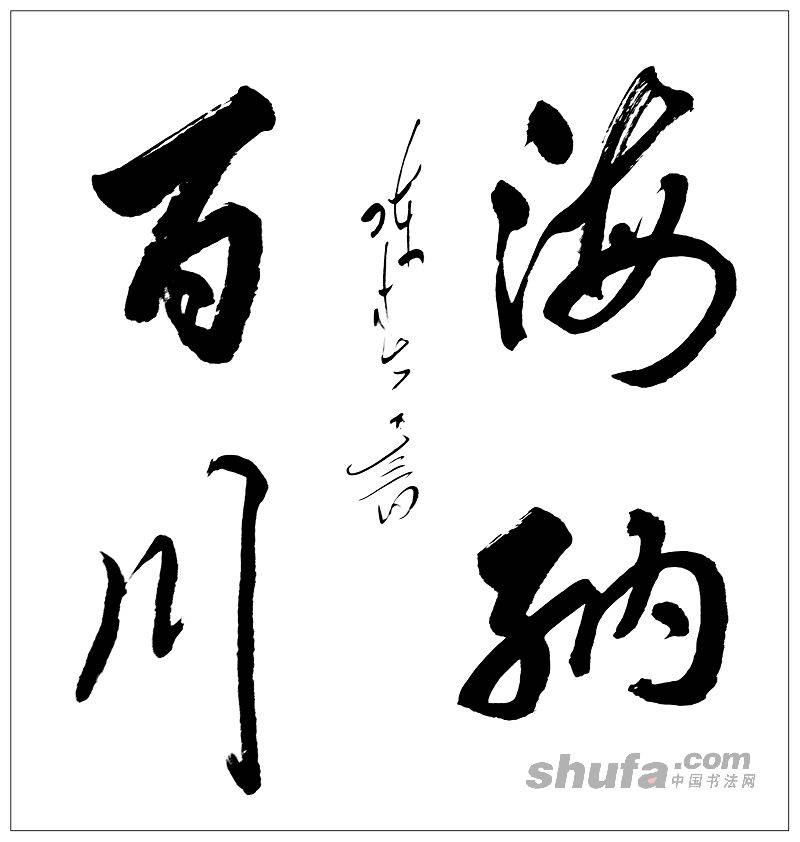 海纳
百川
shufa.com
中国书法网